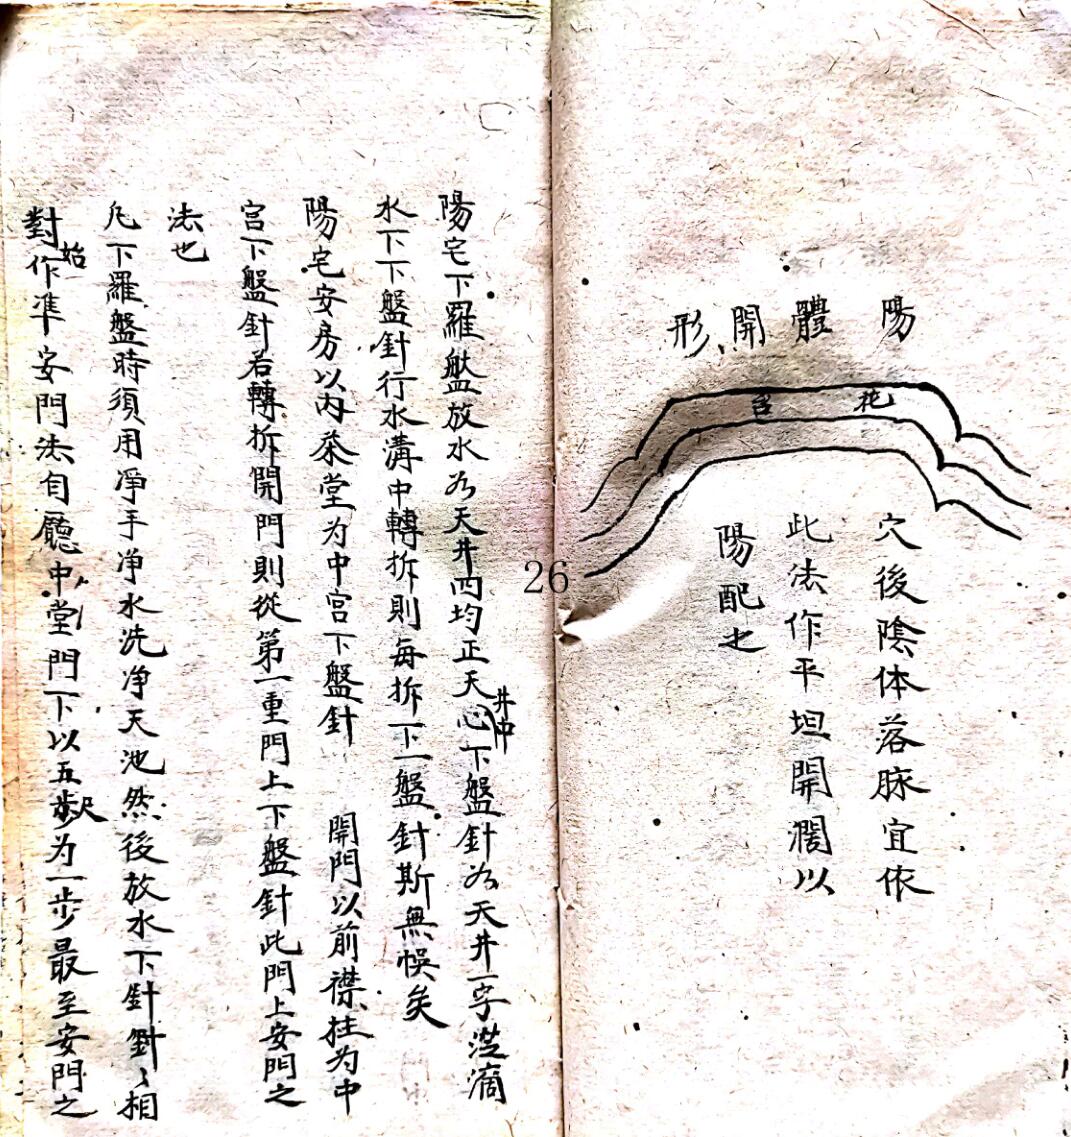 陽體開形
花台
穴後陰体落脉宜依
此法作平坦開濶以
陽配之
26
陽宅下羅盤放水為天井四均正天井中心下盤針為天井一字滴
水下下盤針行水溝中轉折則每折下一盤針斯無悞矣
陽宅安房以內為中宫下盤針 開門以前襟柱为中
宫下盤針若轉折開門則從第一重門上下盤針此門上安門之
法也
凡下羅盤時須用凈手净水洗净天池然後放水下針針針相
對始作準安門法自廳中堂門下以五尺为一步最至安門之